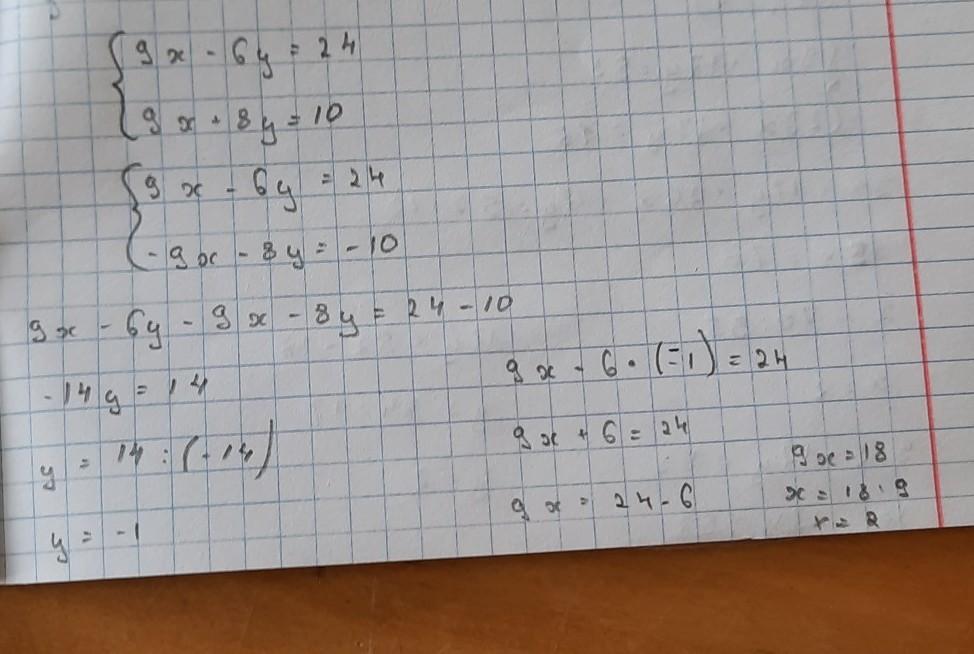 9x - 6y = 24
9x + 8y = 10
9x - 6y = 24
-9x - 8y = -10
9x - 6y - 9x - 8y = 24 - 10
-14y = 14
y = 14 : (-14)
y = -1
9x - 6 · (-1) = 24
9x + 6 = 24
9x = 24 - 6
9x = 18
x = 18 : 9
x = 2